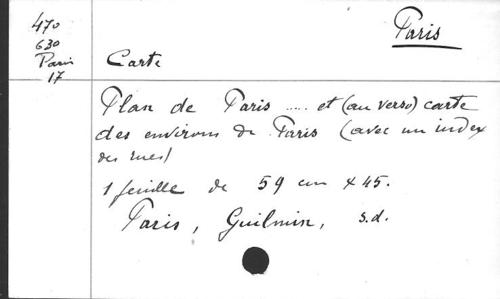 470
630
Paris
17
Paris
Carte
Plan de Paris ..... et (au verso) carte
des environs de Paris (avec un index
des rues)
1 feuille de 59 cm x 45.
Paris, Guilmin, s.d.